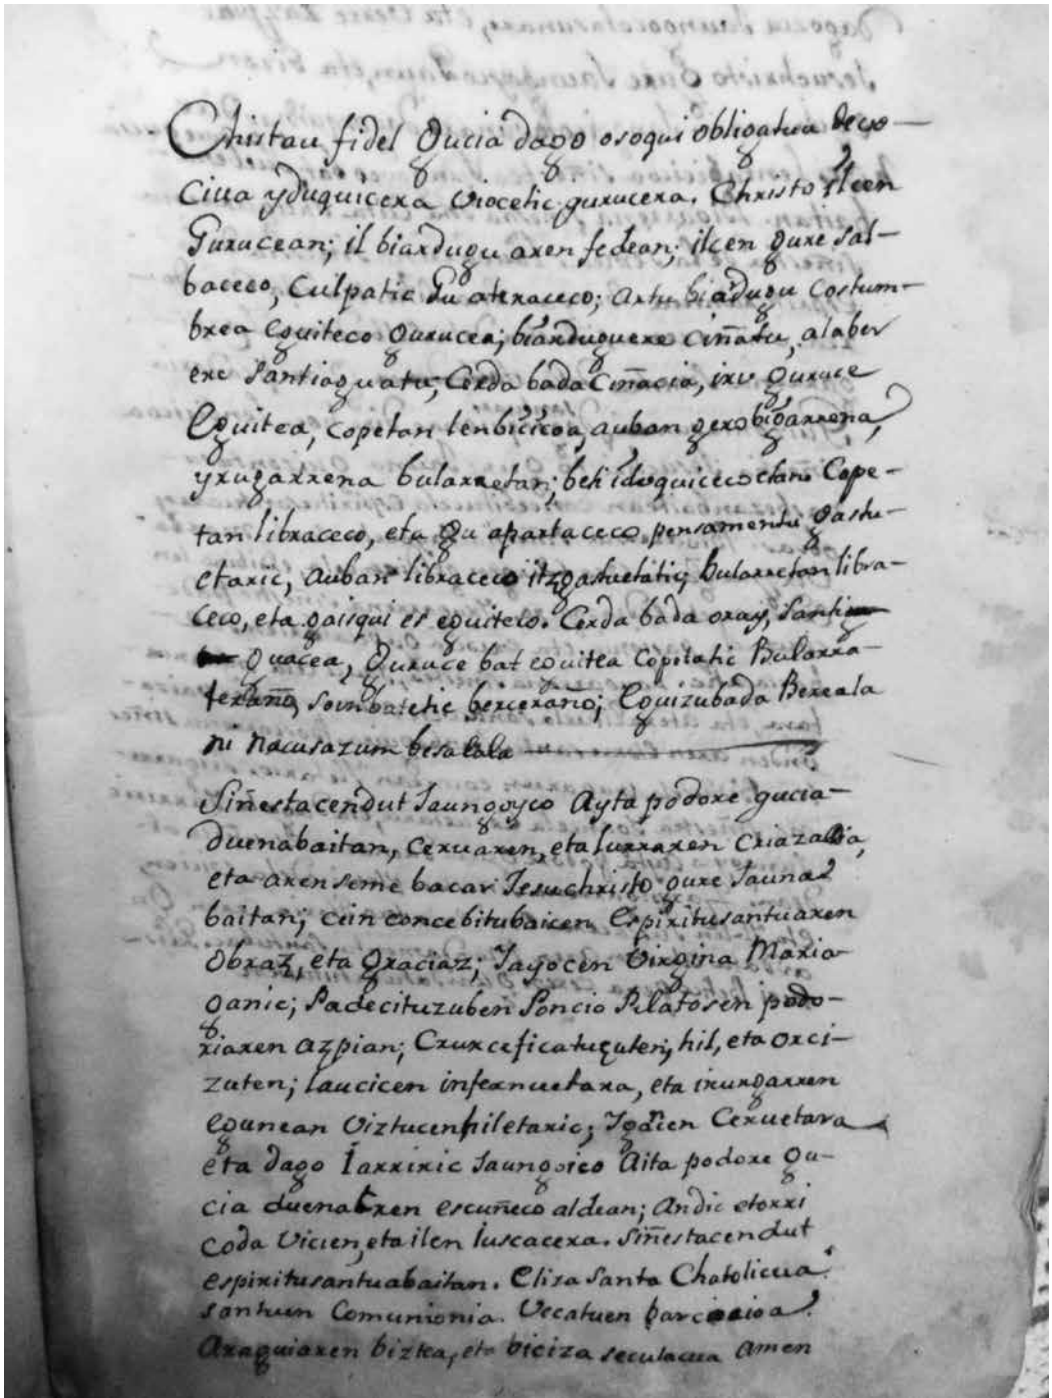 Christau fidel Gucia dago osoqui obligatua devo-
ciua yduquicera viocetic gurucera. Christo ilcen
Gurucean; il biardugu aren fedean; ilcen gure sal-
baceco, Culpatic Gu ateraceco; artu biadugu Costum-
brea Eguiteco Gurucea; biarduguere Ciñatu, alaber
ere Santiaguatu; Cerda bada Ciñacia, iru Guruce
Eguitea, copetan lenbicicoa, auban gero bigarrena,
yrugarrena bularretan; beti iduquiceco etan Cope-
tan libraceco, eta gu apartaceco pensamentu gastu-
etaric, auban libraceco itzgastuetatic, bularretan libra-
ceco, eta gaisqui es eguiteco. Cerda bada oray, Santi
guacea, Guruce bat eguitea copetatic Bularra-
teraño, soinbatetic berceraño; Eguizubada Bereala
ni nacusazum besalala
Siñestacendut Jaungoyco Ayta podore gucia-
duenabaitan, ceruaren, eta lurraren Criazallia,
eta aren seme bacar Jesuchristo gure Jauna
baitan; cein concebitubaicen Espiritusantuaren
Obraz, eta Graciaz; Jayocen Virgina Maria
ganic; Padecituzuben Poncio Pilatosen podo-
riaren azpian; Crurceficatuzuten, hil, eta orci-
zuten; Jaucicen infernuetara, eta irurgarren
egunean Viztucen hiletaric; Igaien Ceruetara
eta dago Jarriric Jaungoico Aita podore gu-
cia duenabren escuñeco aldean; Andic etorri
coda Vicien, eta ilen Juscacera. Siñestacendut
espiritusantuabaitan. Eliza Santa Chatolicua
santuen Comunionia. Vecatuen barcacioa
Araguiaren biztea, eta biciza seculacua Amen